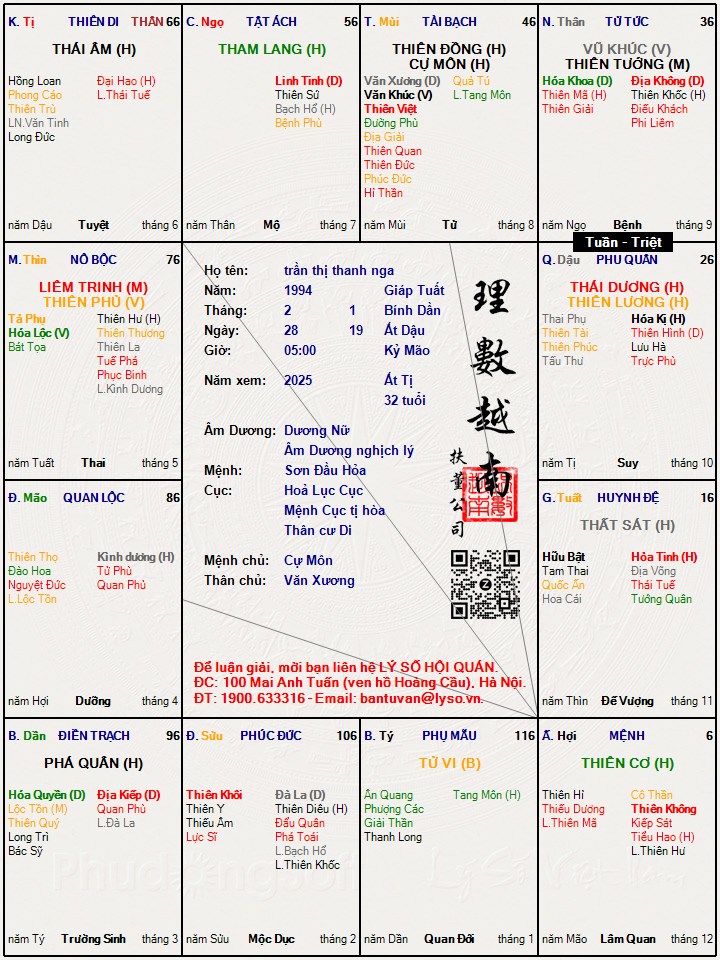 K. Tị THIÊN DI THÂN 66
THÁI ÂM (H)
Hồng Loan Đại Hao (H)
Phong Cáo L.Thái Tuế
Thiên Trù
LN.Văn Tinh
Long Đức
năm Dậu Tuyệt tháng 6
C. Ngọ TẬT ÁCH 56
THAM LANG (H)
Linh Tinh (D)
Thiên Sứ
Bạch Hổ (H)
Bệnh Phù
năm Thân Mộ tháng 7
T. Mùi TÀI BẠCH 46
THIÊN ĐỒNG (H)
CỰ MÔN (H)
Văn Xương (D) Quả Tú
Văn Khúc (V) L.Tang Môn
Thiên Việt
Đường Phù
Địa Giải
Thiên Quan
Thiên Đức
Phúc Đức
Hỉ Thần
năm Mùi Tử tháng 8
N. Thân TỬ TỨC 36
VŨ KHÚC (V)
THIÊN TƯỚNG (M)
Hóa Khoa (D) Địa Không (D)
Thiên Mã (H) Thiên Khốc (H)
Thiên Giải Điếu Khách
Phi Liêm
năm Ngọ Bệnh tháng 9
Tuần - Triệt
M. Thìn NÔ BỘC 76
LIÊM TRINH (M)
THIÊN PHỦ (V)
Tả Phụ Thiên Hư (H)
Hóa Lộc (V) Thiên Thương
Bát Tọa Thiên La
Tuế Phá
Phục Binh
L.Kình Dương
năm Tuất Thai tháng 5
Họ tên: trần thị thanh nga
Năm: 1994 Giáp Tuất
Tháng: 2 1 Bính Dần
Ngày: 28 19 Ất Dậu
Giờ: 05:00 Kỷ Mão
Năm xem: 2025 Ất Tị
32 tuổi
Âm Dương: Dương Nữ
Âm Dương nghịch lý
Mệnh: Sơn Đầu Hỏa
Cục: Hoả Lục Cục
Mệnh Cục tị hòa
Thân cư Di
Mệnh chủ: Cự Môn
Thân chủ: Văn Xương
理數越南
扶董公司
Z
Để luận giải, mời bạn liên hệ LÝ SỐ HỘI QUÁN.
ĐC: 100 Mai Anh Tuấn (ven hồ Hoàng Cầu), Hà Nội.
ĐT: 1900.633316 - Email: bantuvan@lyso.vn.
Q. Dậu PHU QUÂN 26
THÁI DƯƠNG (H)
THIÊN LƯƠNG (H)
Thai Phụ Hóa Kị (H)
Thiên Tài Thiên Hình (D)
Thiên Phúc Lưu Hà
Tấu Thư Trực Phù
năm Tị Suy tháng 10
Đ. Mão QUAN LỘC 86
Thiên Thọ Kình dương (H)
Đào Hoa Tử Phù
Nguyệt Đức Quan Phủ
L.Lộc Tồn
năm Hợi Dưỡng tháng 4
G. Tuất HUYNH ĐỆ 16
THẤT SÁT (H)
Hữu Bật Hỏa Tinh (H)
Tam Thai Địa Võng
Quốc Ấn Thái Tuế
Hoa Cái Tướng Quân
năm Thìn Đế Vượng tháng 11
B. Dần ĐIỀN TRẠCH 96
PHÁ QUÂN (H)
Hóa Quyền (D) Địa Kiếp (D)
Lộc Tồn (M) Quan Phù
Thiên Quý L.Đà La
Long Trì
Bác Sỹ
năm Tý Trường Sinh tháng 3
Đ. Sửu PHÚC ĐỨC 106
Thiên Khôi Đà La (D)
Thiên Y Thiên Diêu (H)
Thiếu Âm Đẩu Quân
Lực Sĩ Phá Toái
L.Bạch Hổ
L.Thiên Khốc
năm Sửu Mộc Dục tháng 2
B. Tý PHỤ MẪU 116
TỬ VI (B)
Ân Quang Tang Môn (H)
Phượng Các
Giải Thần
Thanh Long
năm Dần Quan Đới tháng 1
Ấ. Hợi MỆNH 6
THIÊN CƠ (H)
Thiên Hỉ Cô Thần
Thiếu Dương Thiên Không
L.Thiên Mã Kiếp Sát
Tiểu Hao (H)
L.Thiên Hư
năm Mão Lâm Quan tháng 12
Phudongsoft
Lý Số Việt Nam